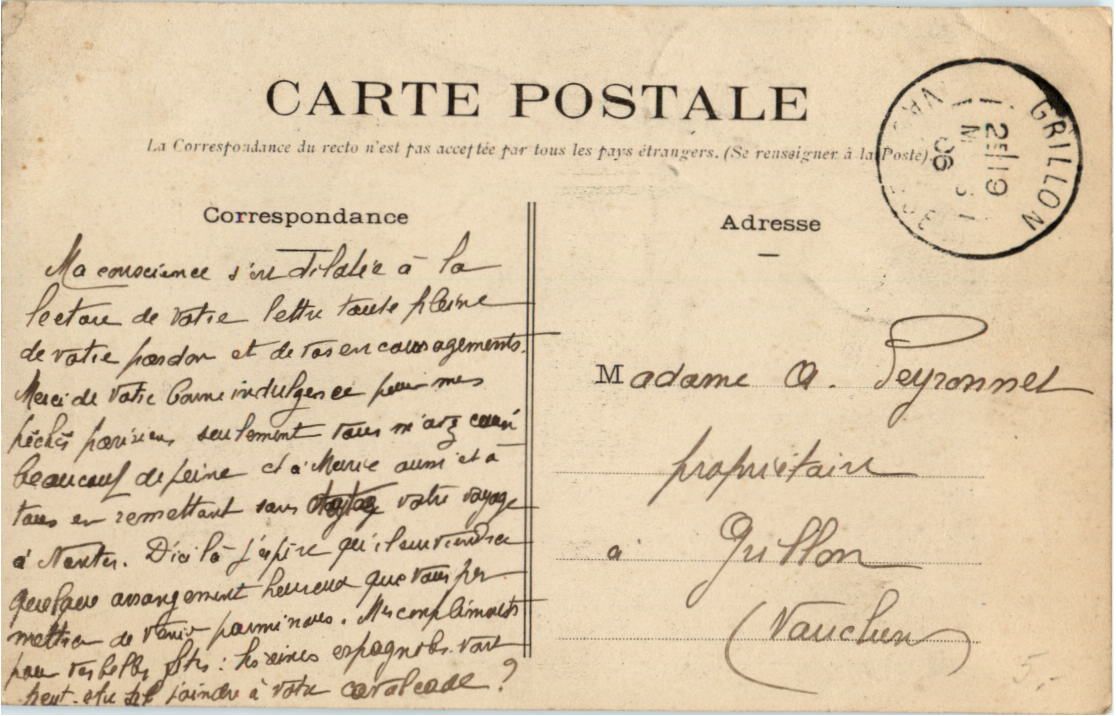 CARTE POSTALE
La Correspondance du recto n'est pas acceptée par tous les pays étrangers. (Se renseigner à la Poste)
Correspondance
Ma conscience s'est dilatée à la
lecture de votre lettre toute pleine
de votre pardon et de vos encouragements.
Merci de votre bonne indulgence pour mes
péchés parisiens, seulement vous m'avez causé
beaucoup de peine et à Marie aussi et à
tous en remettant sans votre voyage
à Nantes. D'ici là j'espère qu'il surviendra
quelque arrangement heureux que vous per
mettra de venir parmi nous. Mes compliments
pour vos belles fêtes : les reines espagnoles vont
peut-être se joindre à votre cavalcade ?
Adresse
Madame A. Peyronnet
propriétaire
à Grillon
(Vaucluse)
GRILLON
VAUCLUSE
2E /19
06
5.-